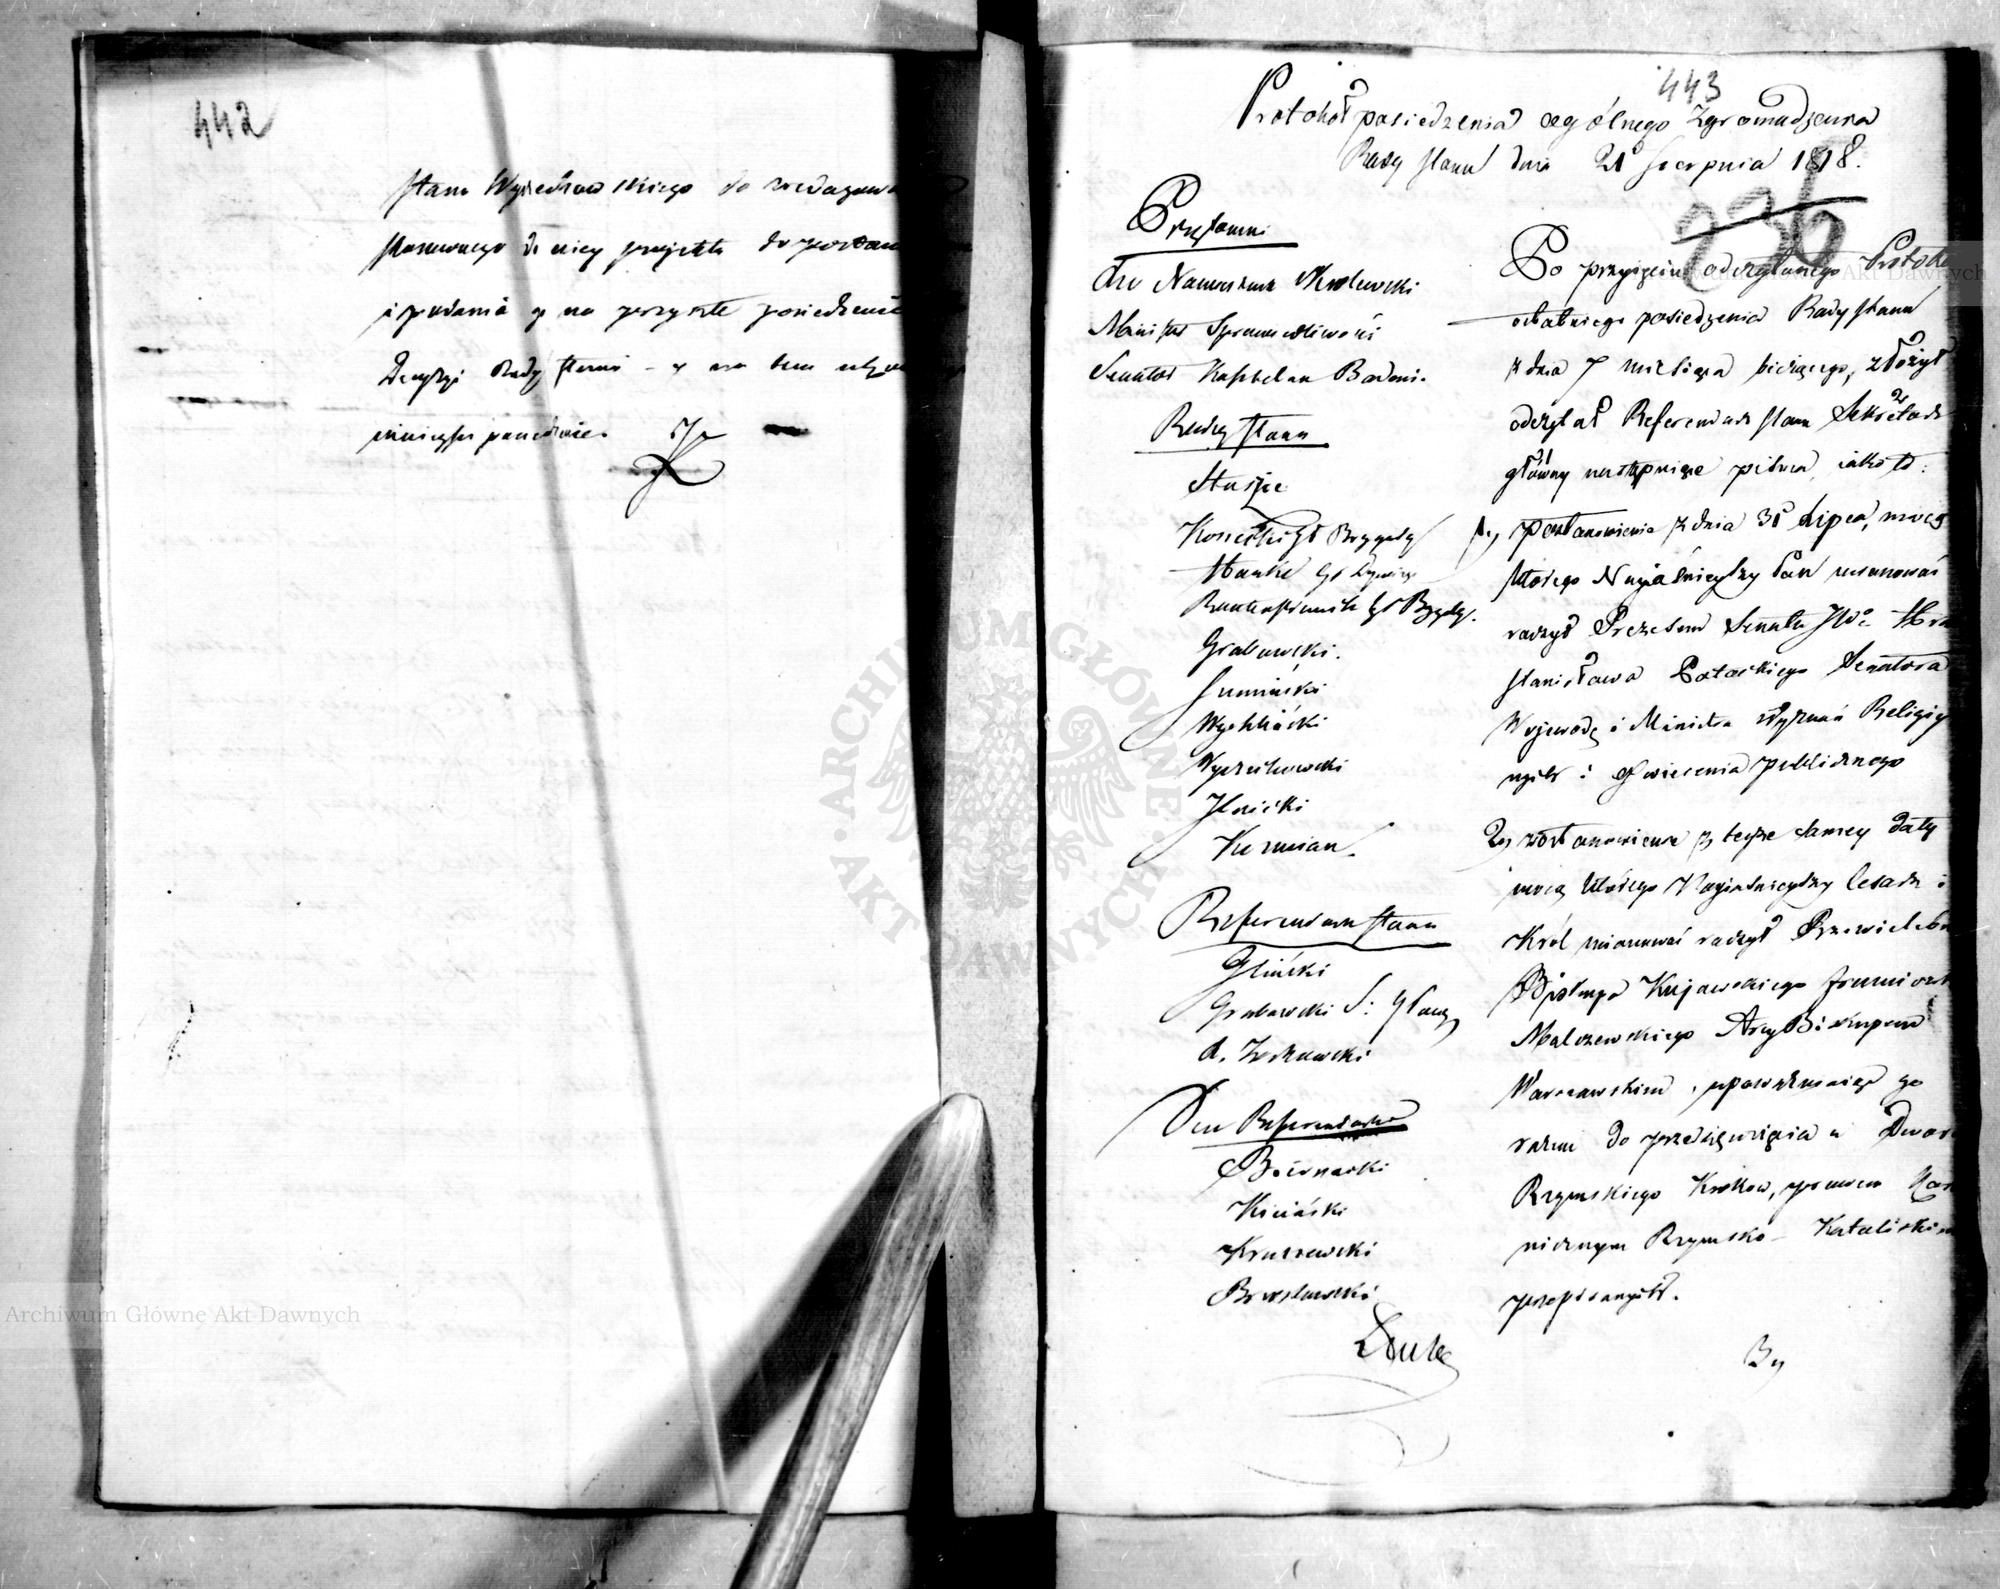 442
stanu Wyczechowskiego do zredagowa
stosownego do niey projektu do postan
i podania go na przyszłe posiedzenie
Decyzyi Rady Stanu – y na tem
ninieysze posiedzenie.
443
Protokoł posiedzenia ogólnego Zgromadzenia
Rady Stanu dnia 21 Sierpnia 1818.
Przytomni
JW Namiestnik Krolewski
Minister Sprawiedliwości
Senator Kasztelan Badeni.
Radcy Stanu
Staszic
Kossecki Gł Brygady
Hauke Gł Dywizyi
Rautenstrauch Gł Brygady.
Grabowski.
Sumiński
Wychlicki
Wyczechowski
Kozmian.
Referendarze Stanu
Gliński
Grabowski S: Główny
A. Żochowski
Nad Referendarze
Biernacki
Kiciński
Kruszewski
Brzostowski
Po przyjęciu odczytanego Protoko
ostatniego posiedzenia Rady Stanu
z dnia 7 miesiąca bieżącego, złożył
odczytał Referendarz Stanu Sekretarz
główny następuiące pisma, iako to:
1) postanowienie z dnia 31 Lipca, mocą
którego Nayiaśnieyszy Pan mianować
raczył Prezesem Senatu JWo Hra
Stanisława Potockiego Senatora
Wojewodę i Ministra Wyznań Religiy
nych i Oświecenia publicznego
2) postanowienie z teyże samey daty
mocą którego Nayiaśnieyszy Cesarz i
Król mianować raczył Przewielebn
Biskupa Kujawskiego Franciszk
Malczewskiego Arcy Biskupem
Warszawskim, upoważniaiąc go
razem do przedsięwzięcia u Dwor
Rzymskiego Kroków, prawem Kan
nicznym Rzymsko – Katolickim
przepisanych.
By
Archiwum Główne Akt Dawnych
ARCHIWUM GŁÓWNE AKT DAWNYCH